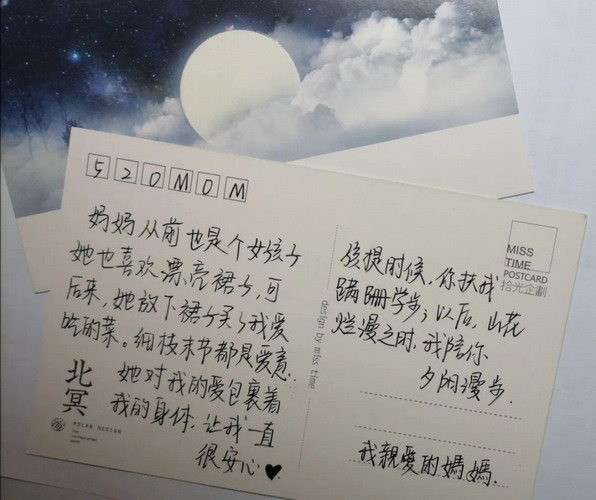 520MOM
妈妈从前也是个女孩子
她也喜欢漂亮裙子,可
后来,她放下裙子买了我爱
吃的菜。细枝末节都是爱意..
她对我的爱包裹着
我的身体,让我一直
很安心♥
北冥
POLAR REGION
design by miss time
MISS
TIME
POSTCARD
拾光企劃
孩提时候,你扶我
蹒跚学步;以后,山花
烂漫之时,我陪你
夕阳漫步.
我親愛的媽媽.